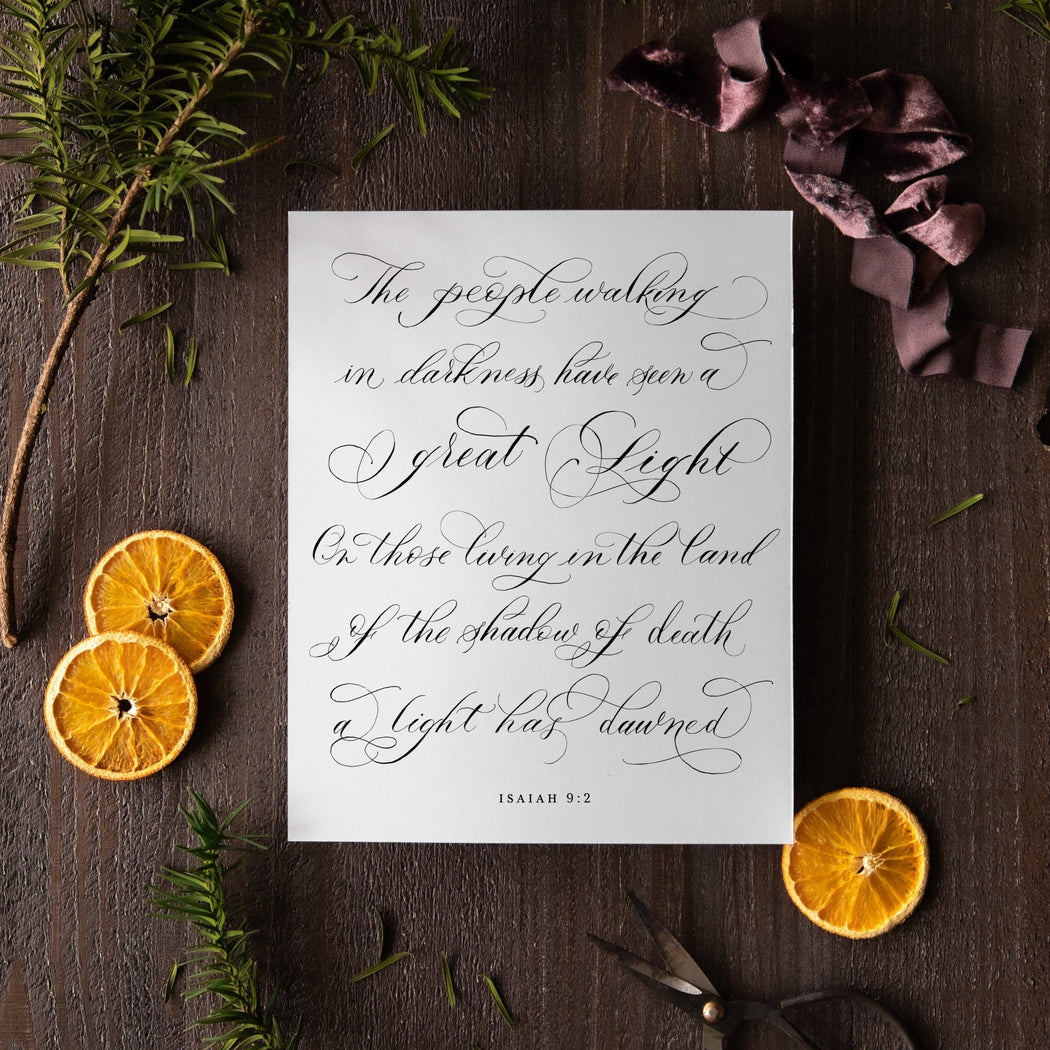 The people walking
in darkness have seen a
great Light
On those living in the land
of the shadow of death
a light has dawned
ISAIAH 9:2